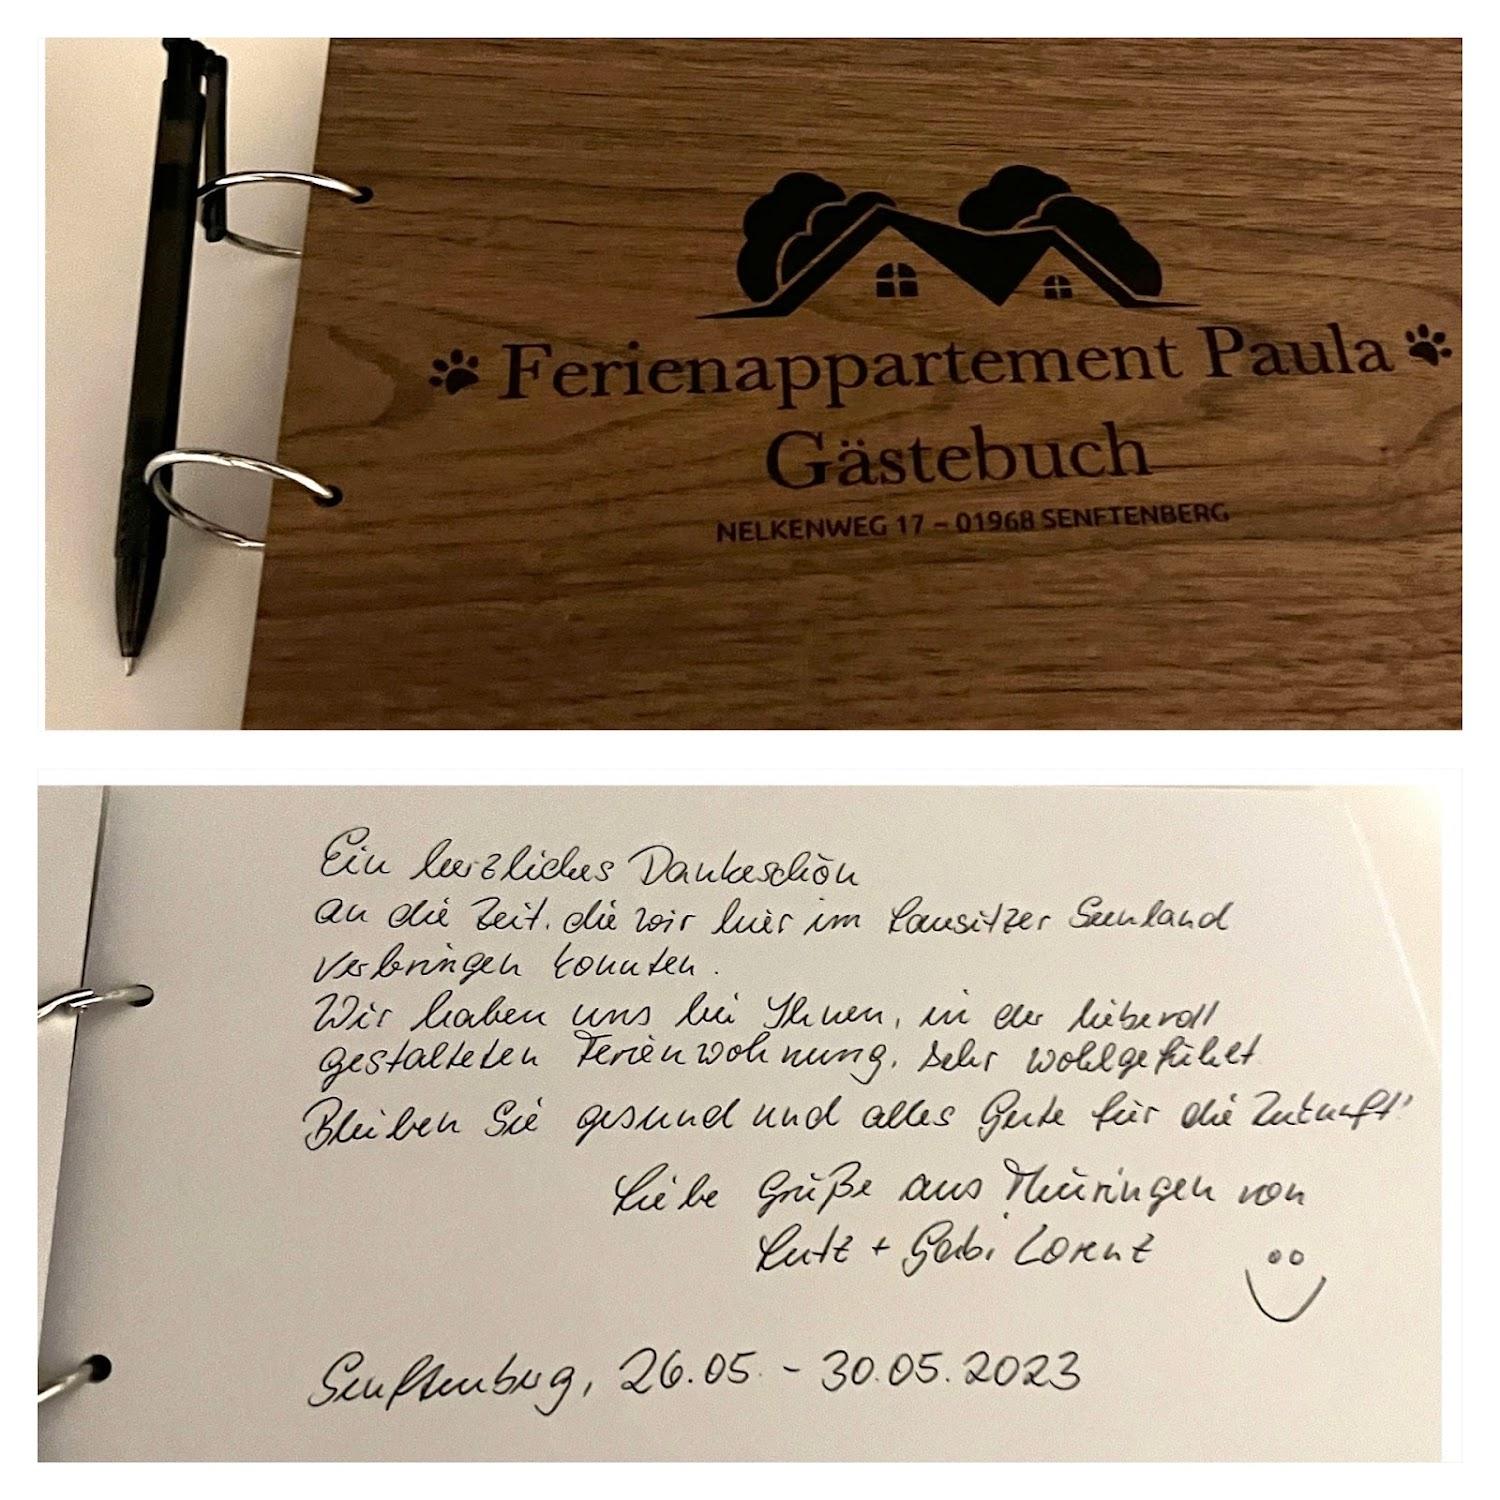 Ferienappartement Paula
Gästebuch
NELKENWEG 17 – 01968 SENFTENBERG
Ein herzliches Dankeschön
an die Zeit, die wir hier im Lausitzer Seenland
verbringen konnten.
Wir haben uns bei Ihnen, in der liebevoll
gestalteten Ferienwohnung, sehr wohlgefühlt.
Bleiben Sie gesund und alles Gute für die Zukunft!
Liebe Grüße aus Thüringen von
Lutz + Gabi Lorenz
Senftenberg, 26.05. - 30.05.2023